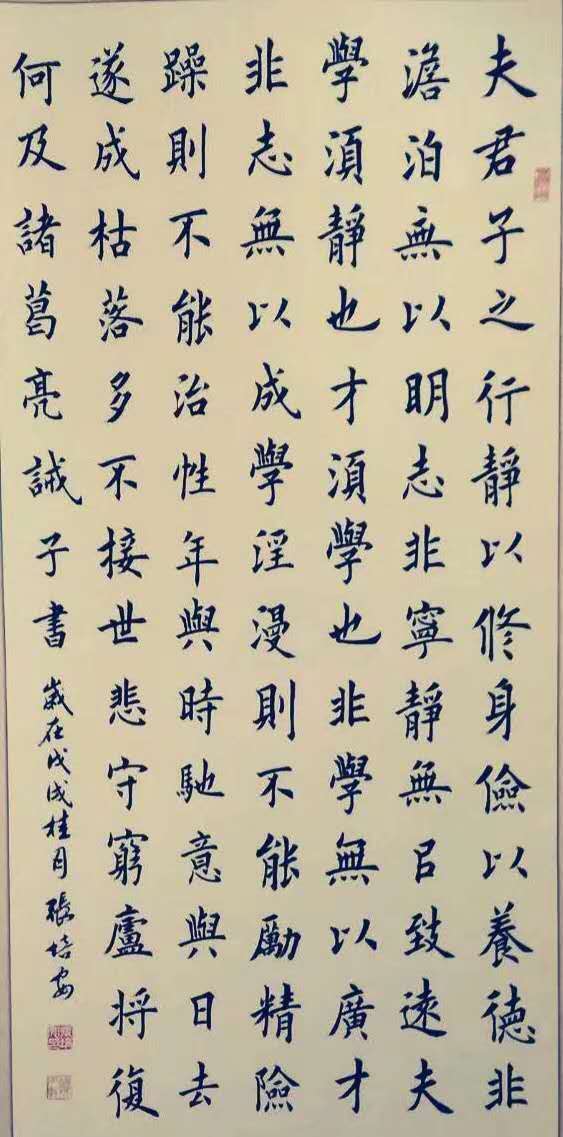 夫君子之行靜以修身儉以養德非
澹泊無以明志非寧靜無㠯致遠夫
學須靜也才須學也非學無以廣才
非志無以成學淫漫則不能勵精險
躁則不能治性年與時馳意與日去
遂成枯落多不接世悲守窮廬將復
何及諸葛亮誡子書 歲在戊戌桂月 張培安